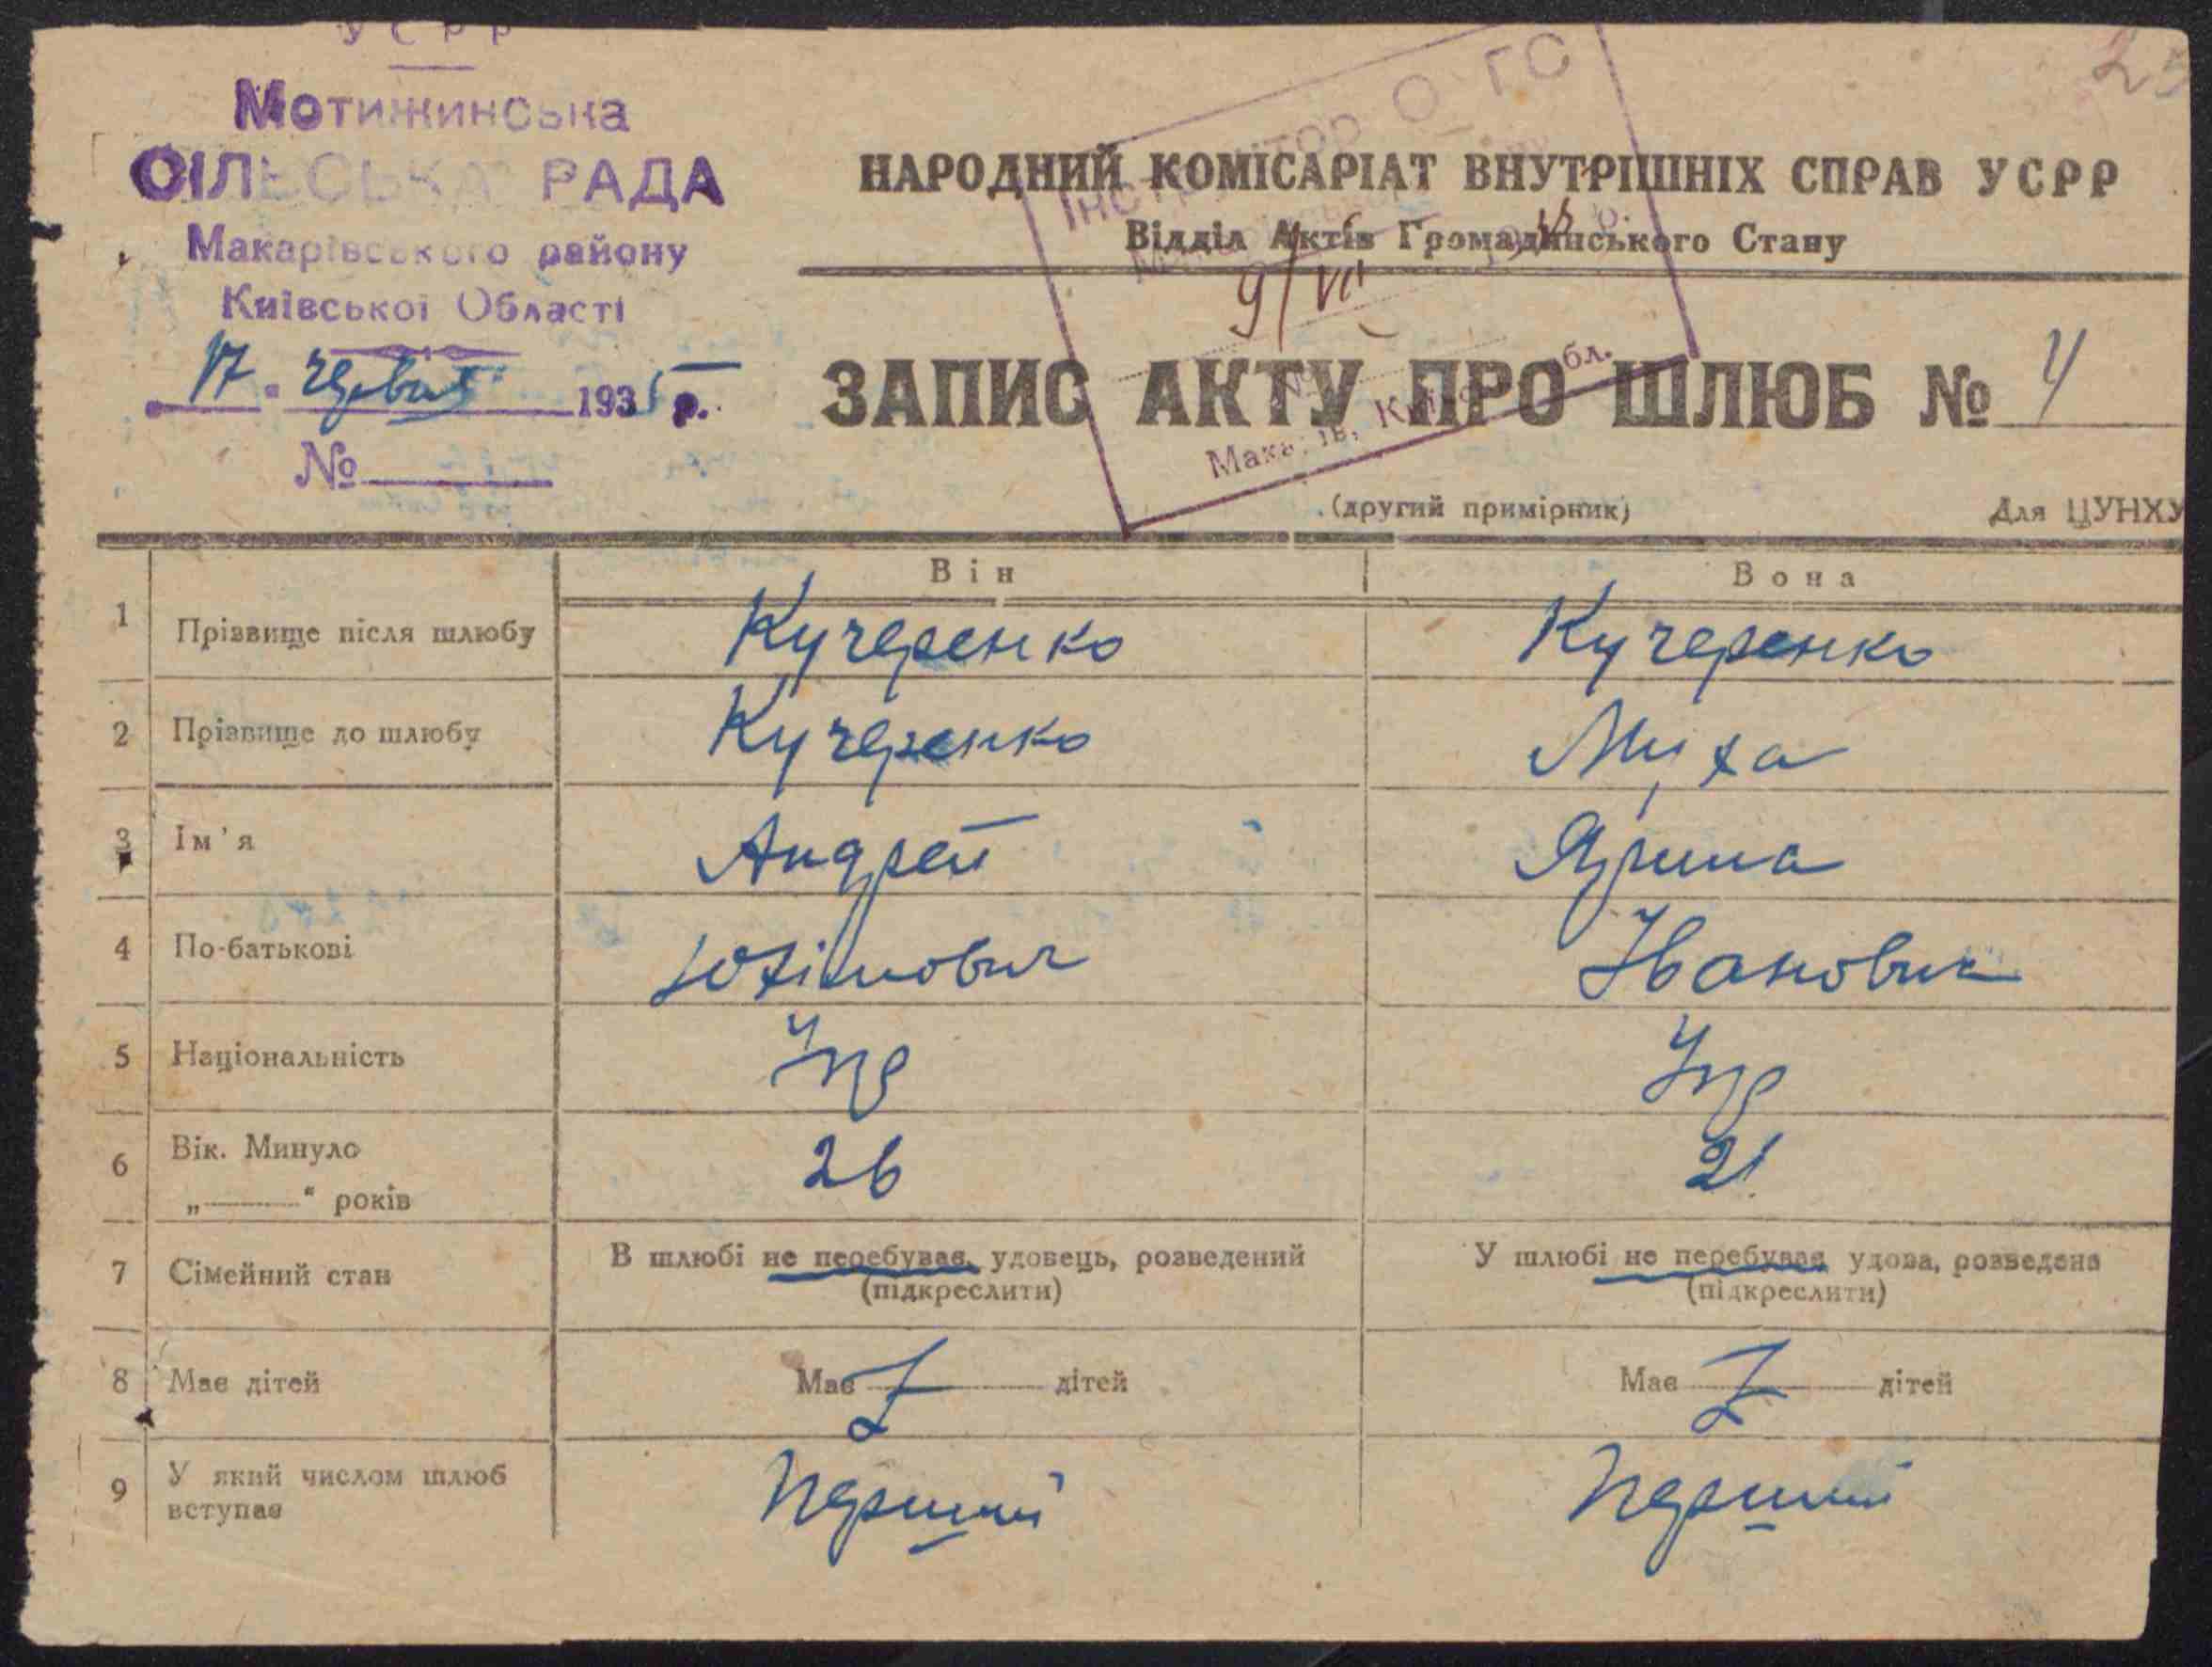 УСРР
Мотижинська
СІЛЬСЬКА РАДА
Макарівського району
Київської Області
17 червня 1935 р.
№
25
Інструктор О ГС
НАРОДНИЙ КОМІСАРІАТ ВНУТРІШНІХ СПРАВ УСРР
Відділ Актів Громадянського Стану
9/VII
ЗАПИС АКТУ ПРО ШЛЮБ № 4
Макарів, Київ обл.
(другий примірник)
Для ЦУНХУ
Він Вона
1 Прізвище після шлюбу Кучеренко Кучеренко
2 Прізвище до шлюбу Кучеренко Муха
3 Ім'я Андрей Ярина
4 По-батькові Юхімович Івановна
5 Національність Укр Укр
6 Вік. Минуло 26 21
„ “ років
7 Сімейний стан В шлюбі не перебував, удовець, розведений У шлюбі не перебувая удова, розведена
(підкреслити) (підкреслити)
8 Має дітей Має дітей Має дітей
9 У який числом шлюб Перший Перший
вступає